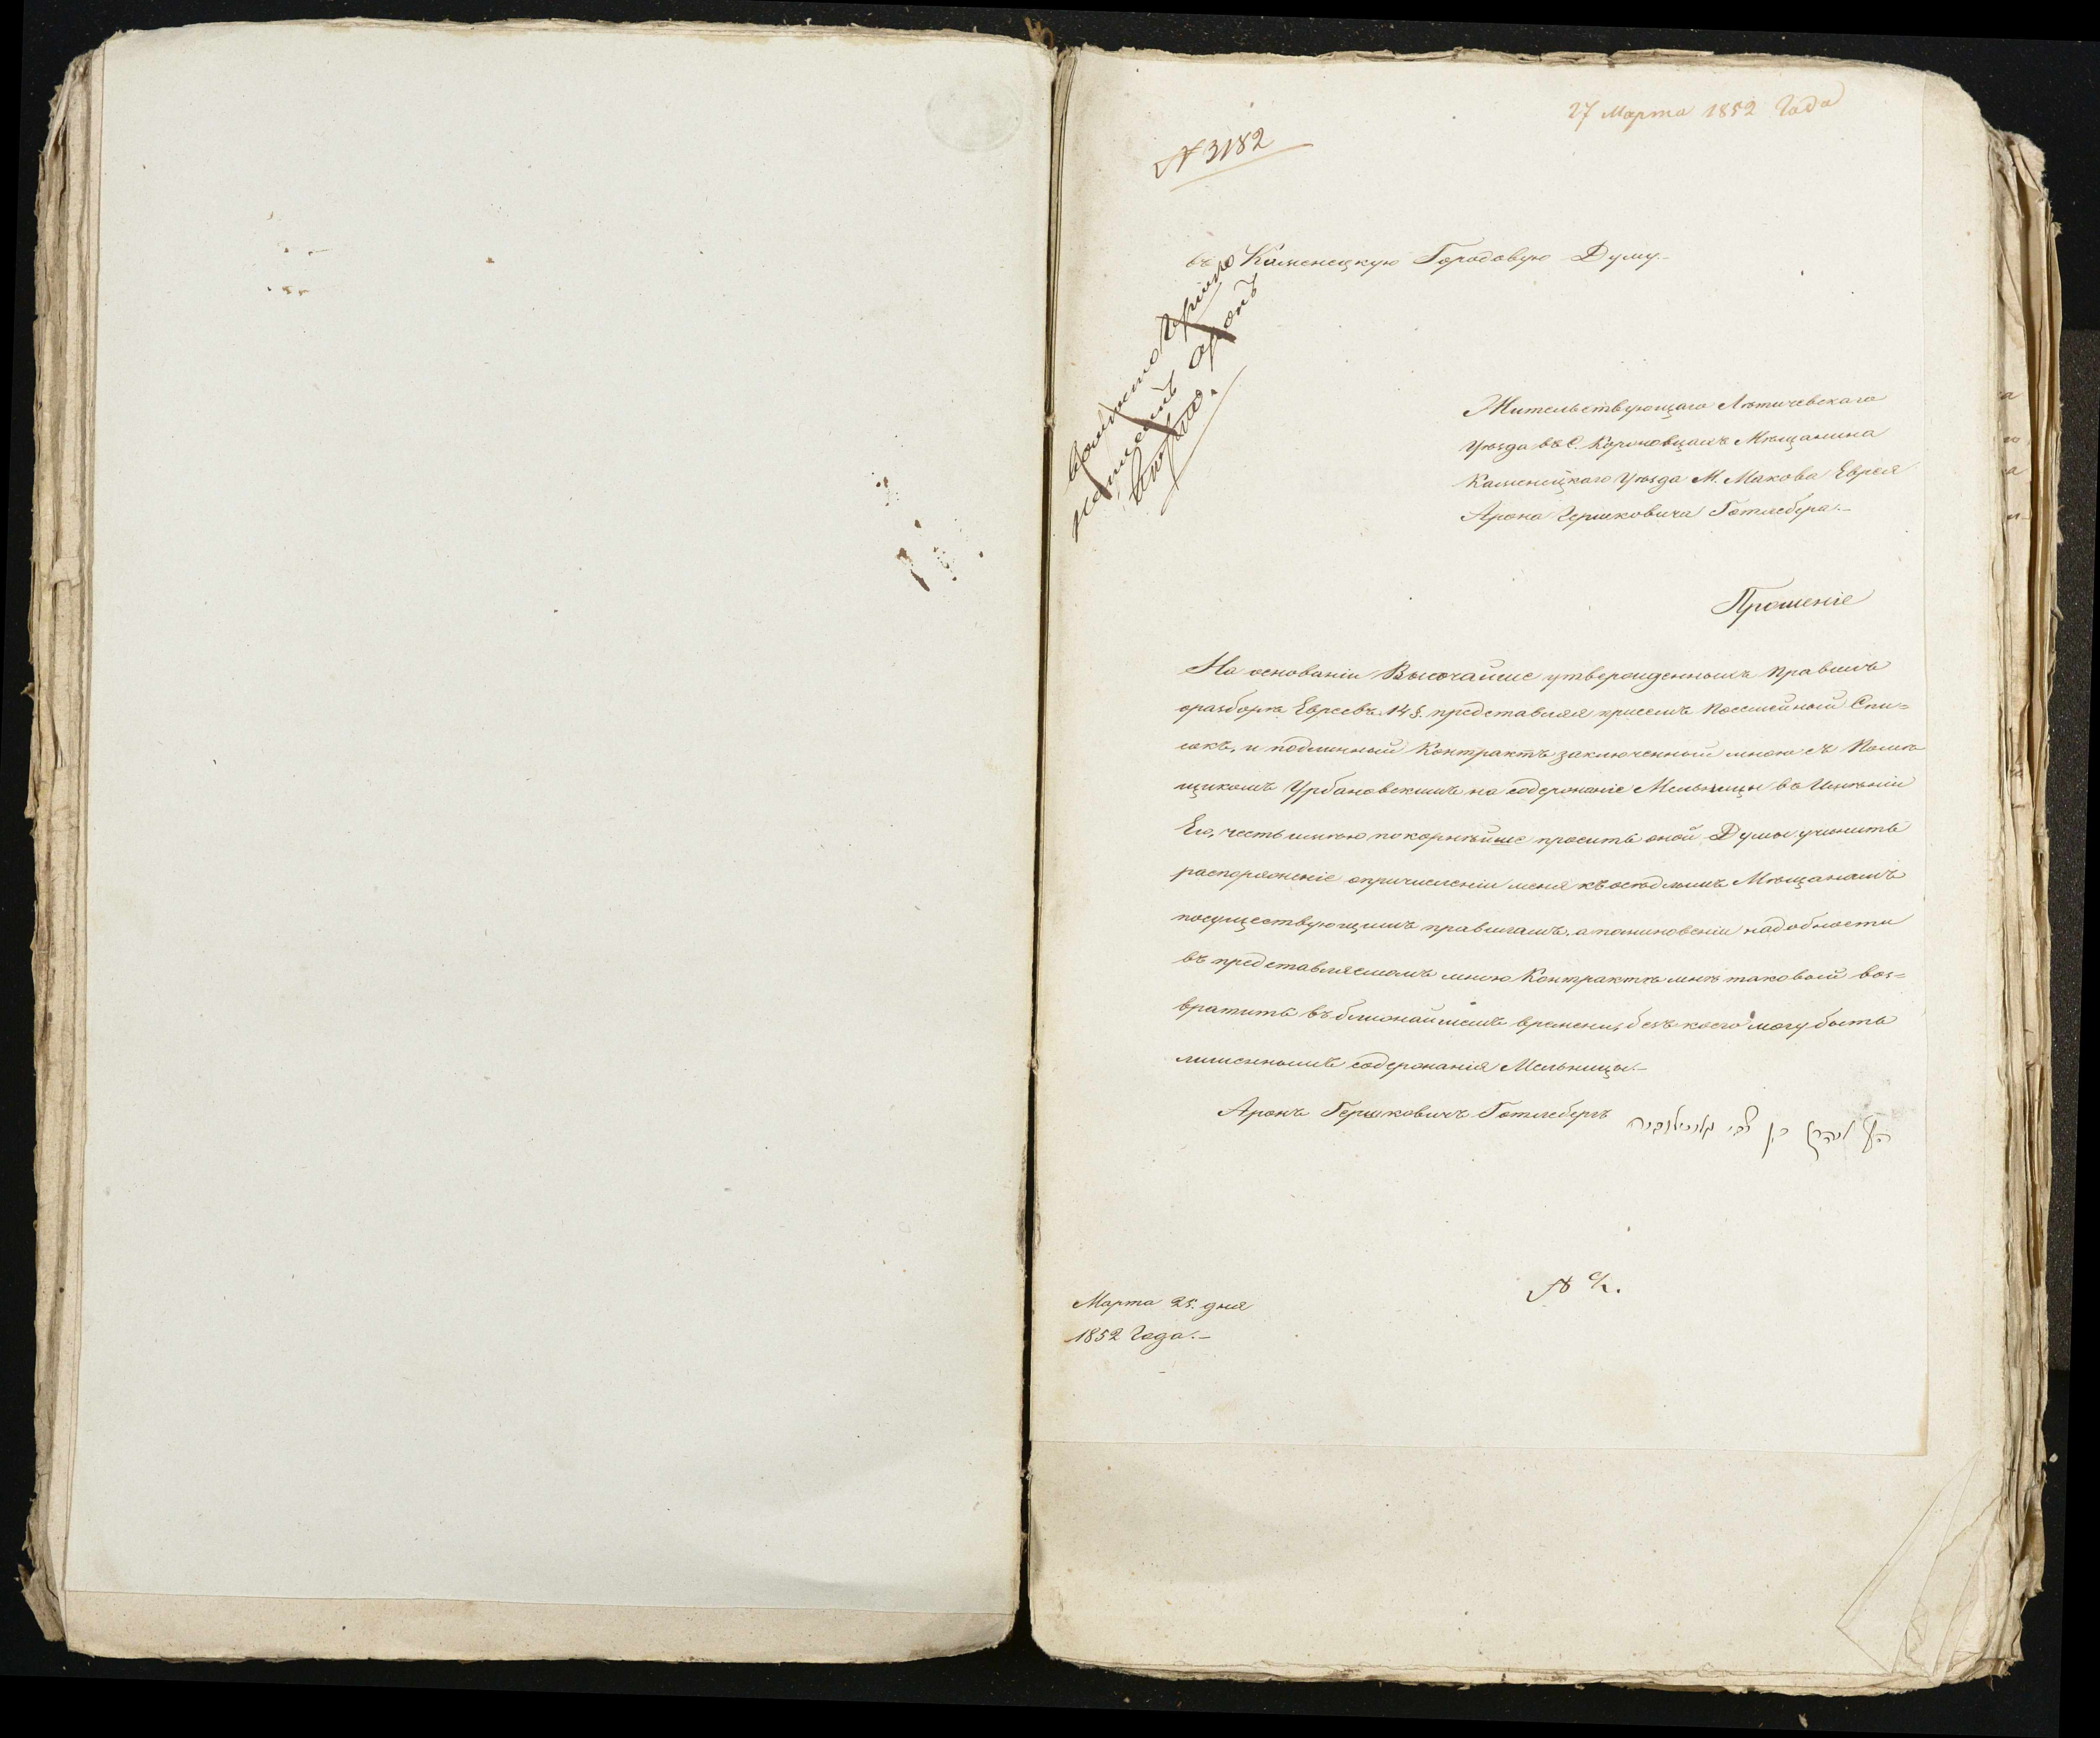 27 Марта 1852 Года
№ 3182
въ Каменецкую Городовую Думу.
Жительствующаго Лѣтичевскаго
Уѣзда въ С. Кариовцахъ Мѣщанина
Каменецкаго Уѣзда М. Макова Еврея
Арона Гершковича Готлебера.
Прошеніе
На основаніи Высочайше утвержденныхъ правилъ
о разборѣ Евреевъ 14 §. представляя присемъ посемейный Спи=
сокъ, и подлинный Контрактъ заключенный мною съ Помѣ
щикомъ Урбановскимъ на содержаніе Мельницы въ Имѣніи
Его, честь имѣю покорнѣйше просить оной Думы учинить
распоряженіе о причисленіи меня къ осѣдлымъ Мѣщанамъ
по существующимъ правиламъ, а по миновеніи надобности
въ представляемомъ мною Контрактѣ мнѣ таковый воз=
вратить въ ближайшемъ времени, безъ коего могу быть
лишеннымъ содержанія Мельницы.
Аронъ Гершковичъ Готлеберъ
אהרן בן צבי
Марта 25. дня
1852 Года.